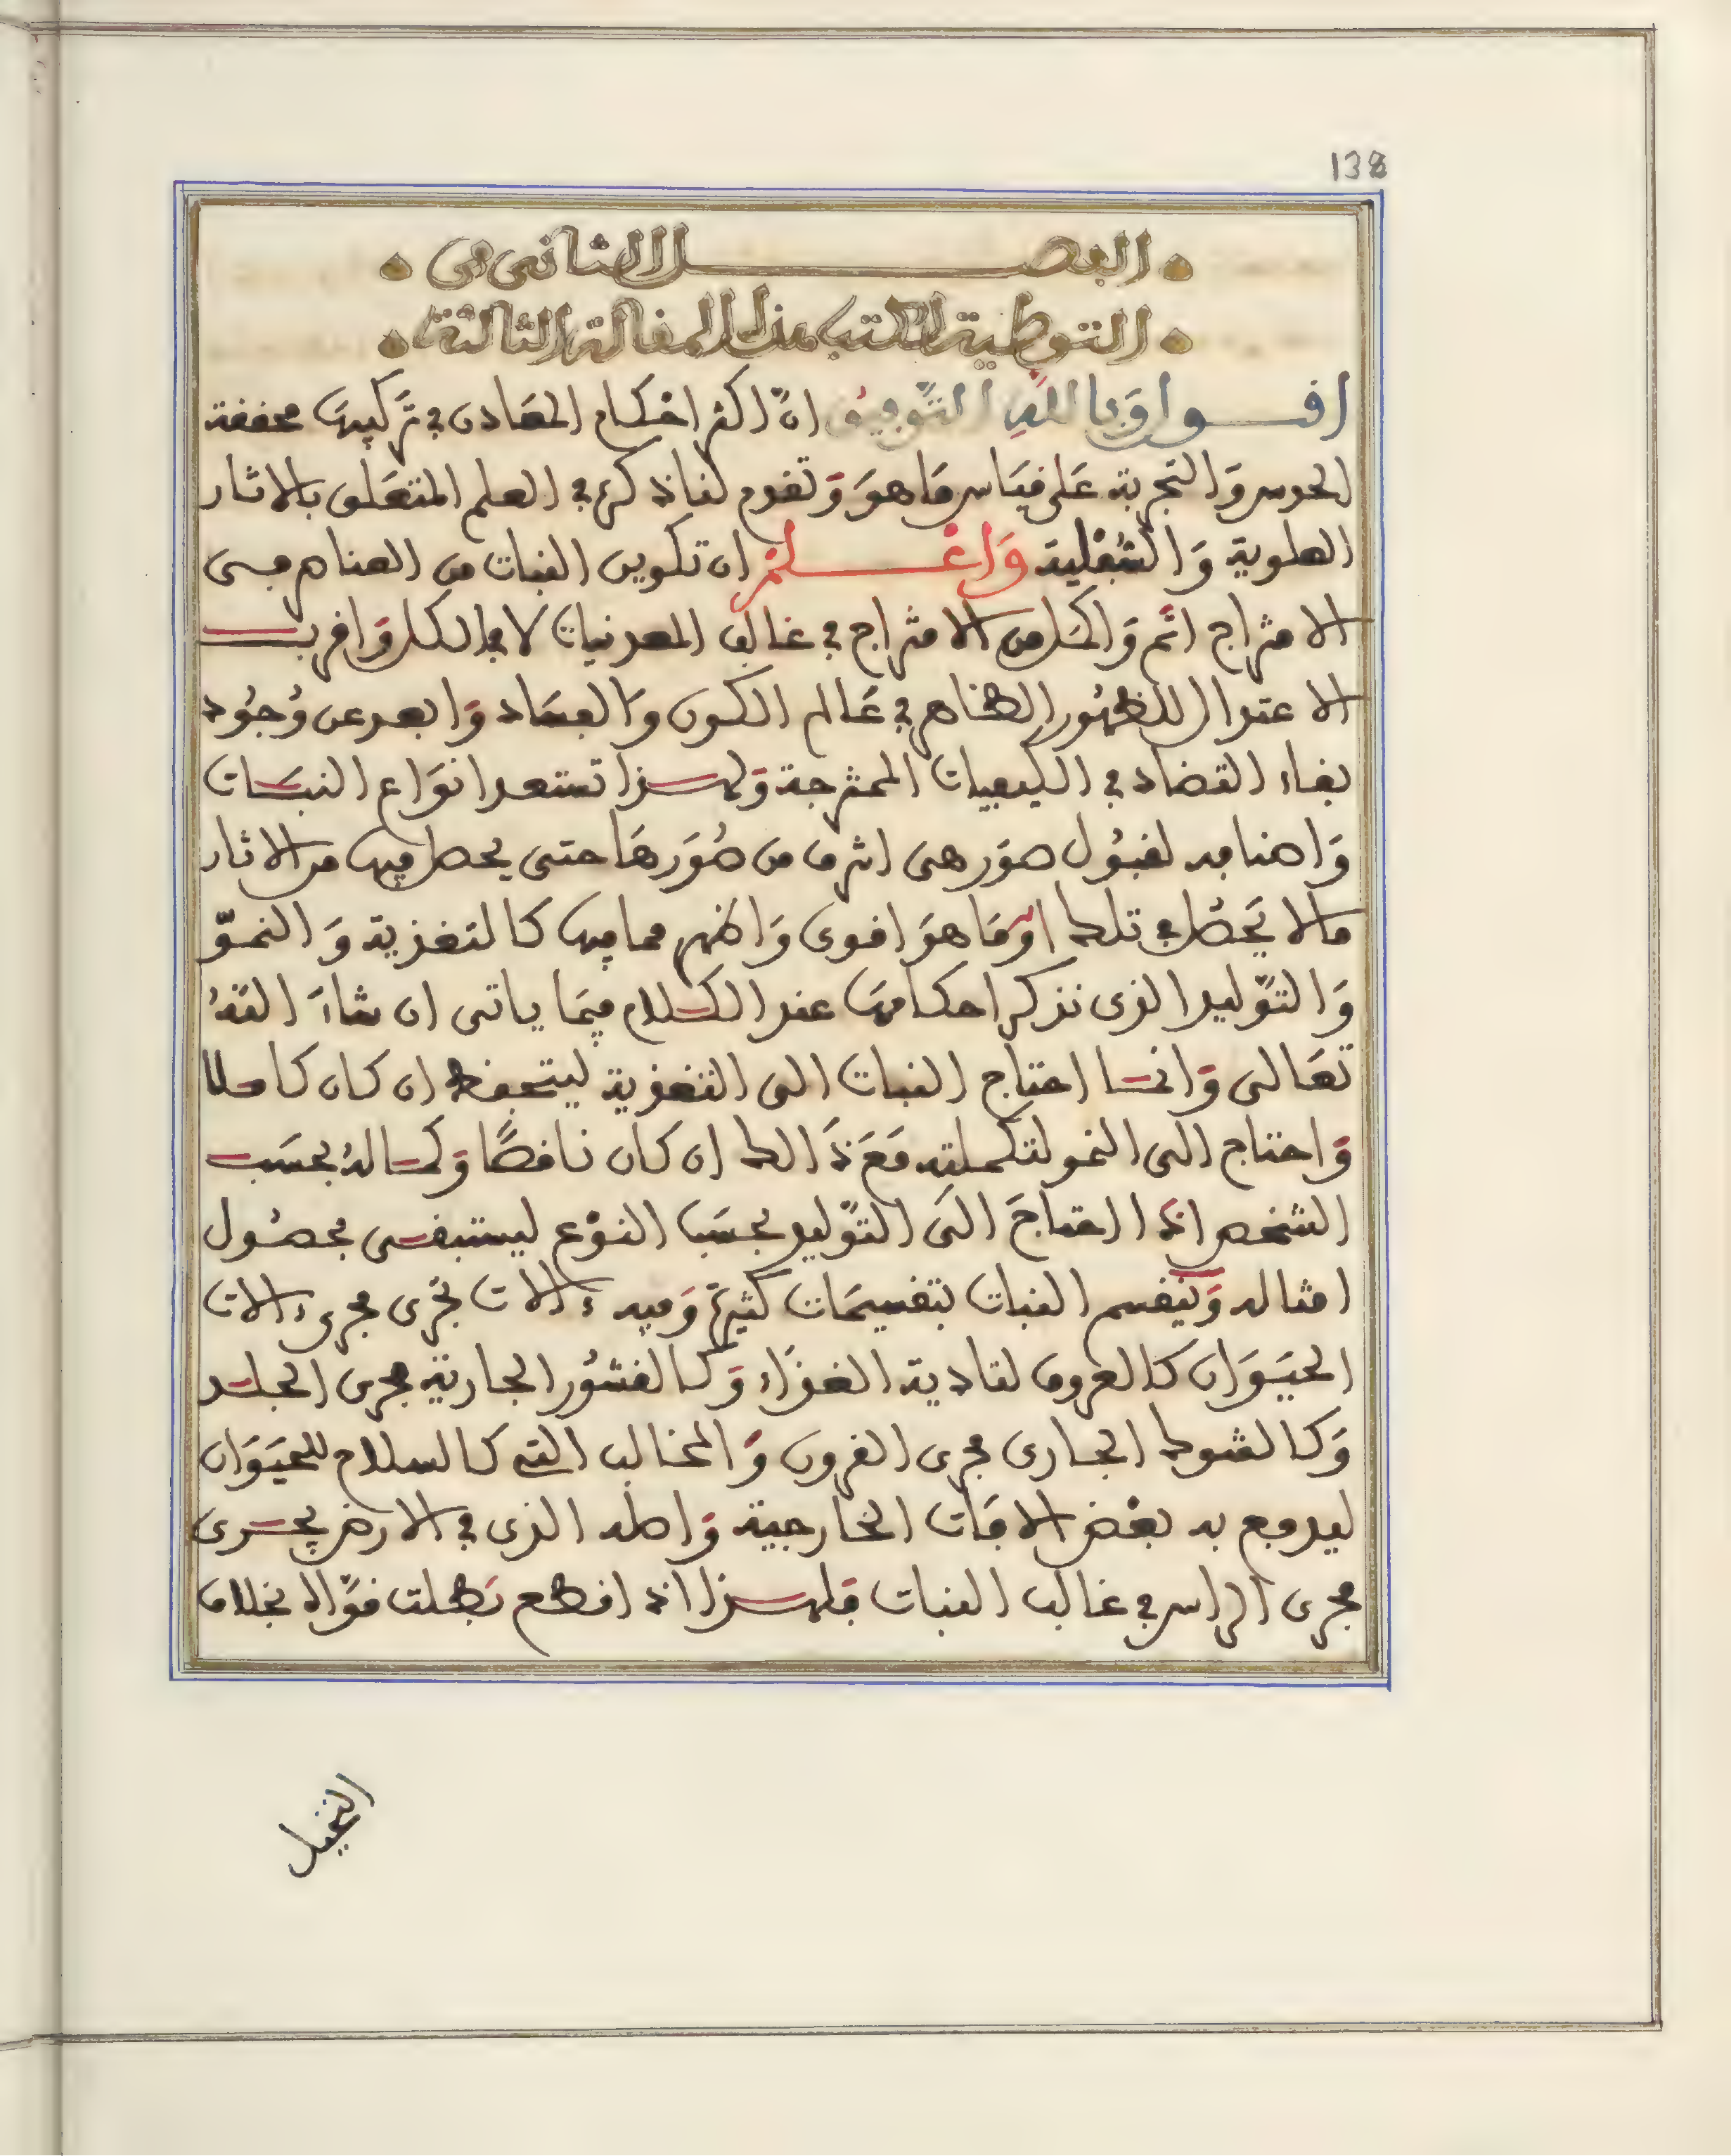 138
الفصل الثاني في
التوطية لكتب هذه المقالة الثالثة
اقول وبالله التوفيق ان اكثر احكام المعادن في تركيبها محققة
الحدس والتجربة على قياس ما هو وتقدم لنا ذكره في العلم المتعلق بالاثار
العلوية والسفلية واعلم ان تكوين النبات من العناصر في
الامتزاج اتم واكمل من الامتزاج في غالب المعدنيات لا في الكل واقرب
الاعتدال للظهور الظاهر في عالم الكون والفساد وابعد عن وجود
بقاء التضاد في الكيفيات الممتزجة ولهذا تستعد انواع النبات
واصنافه لقبول صور هي اشرف من صورها حتى يحصل فيها من الاثار
ما لا يحصل في تلك او ما هو اقوى واظهر مما فيها كالتغذية والنمو
والتوليد الذي نذكر احكامها عند الكلام فيما ياتي ان شاء الله
تعالى وانما احتاج النبات الى التغذية ليتحفظ ان كان كاملا
واحتاج الى النمو لتكملته مع ذالك ان كان ناقصا وكماله بحسب
الشخص اذا احتاج الى التوليد بحسب النوع ليستبقى بحصول
امثاله وينقسم النبات بتقسيمات كثيرة وفيه ءالات تجرى مجرى ءالات
الحيوان كالعروق لتادية الغذاء وكالقشور الجارية مجرى الجلد
وكالشوك الجارى مجرى القرون والمخالب التي كالسلاح للحيوان
ليدفع به بعض الافات الخارجية واصله الذي في الارض يجرى
مجرى الراس في غالب النبات فلهذا اذا قطع بطلت قواه بخلاف
النخيل